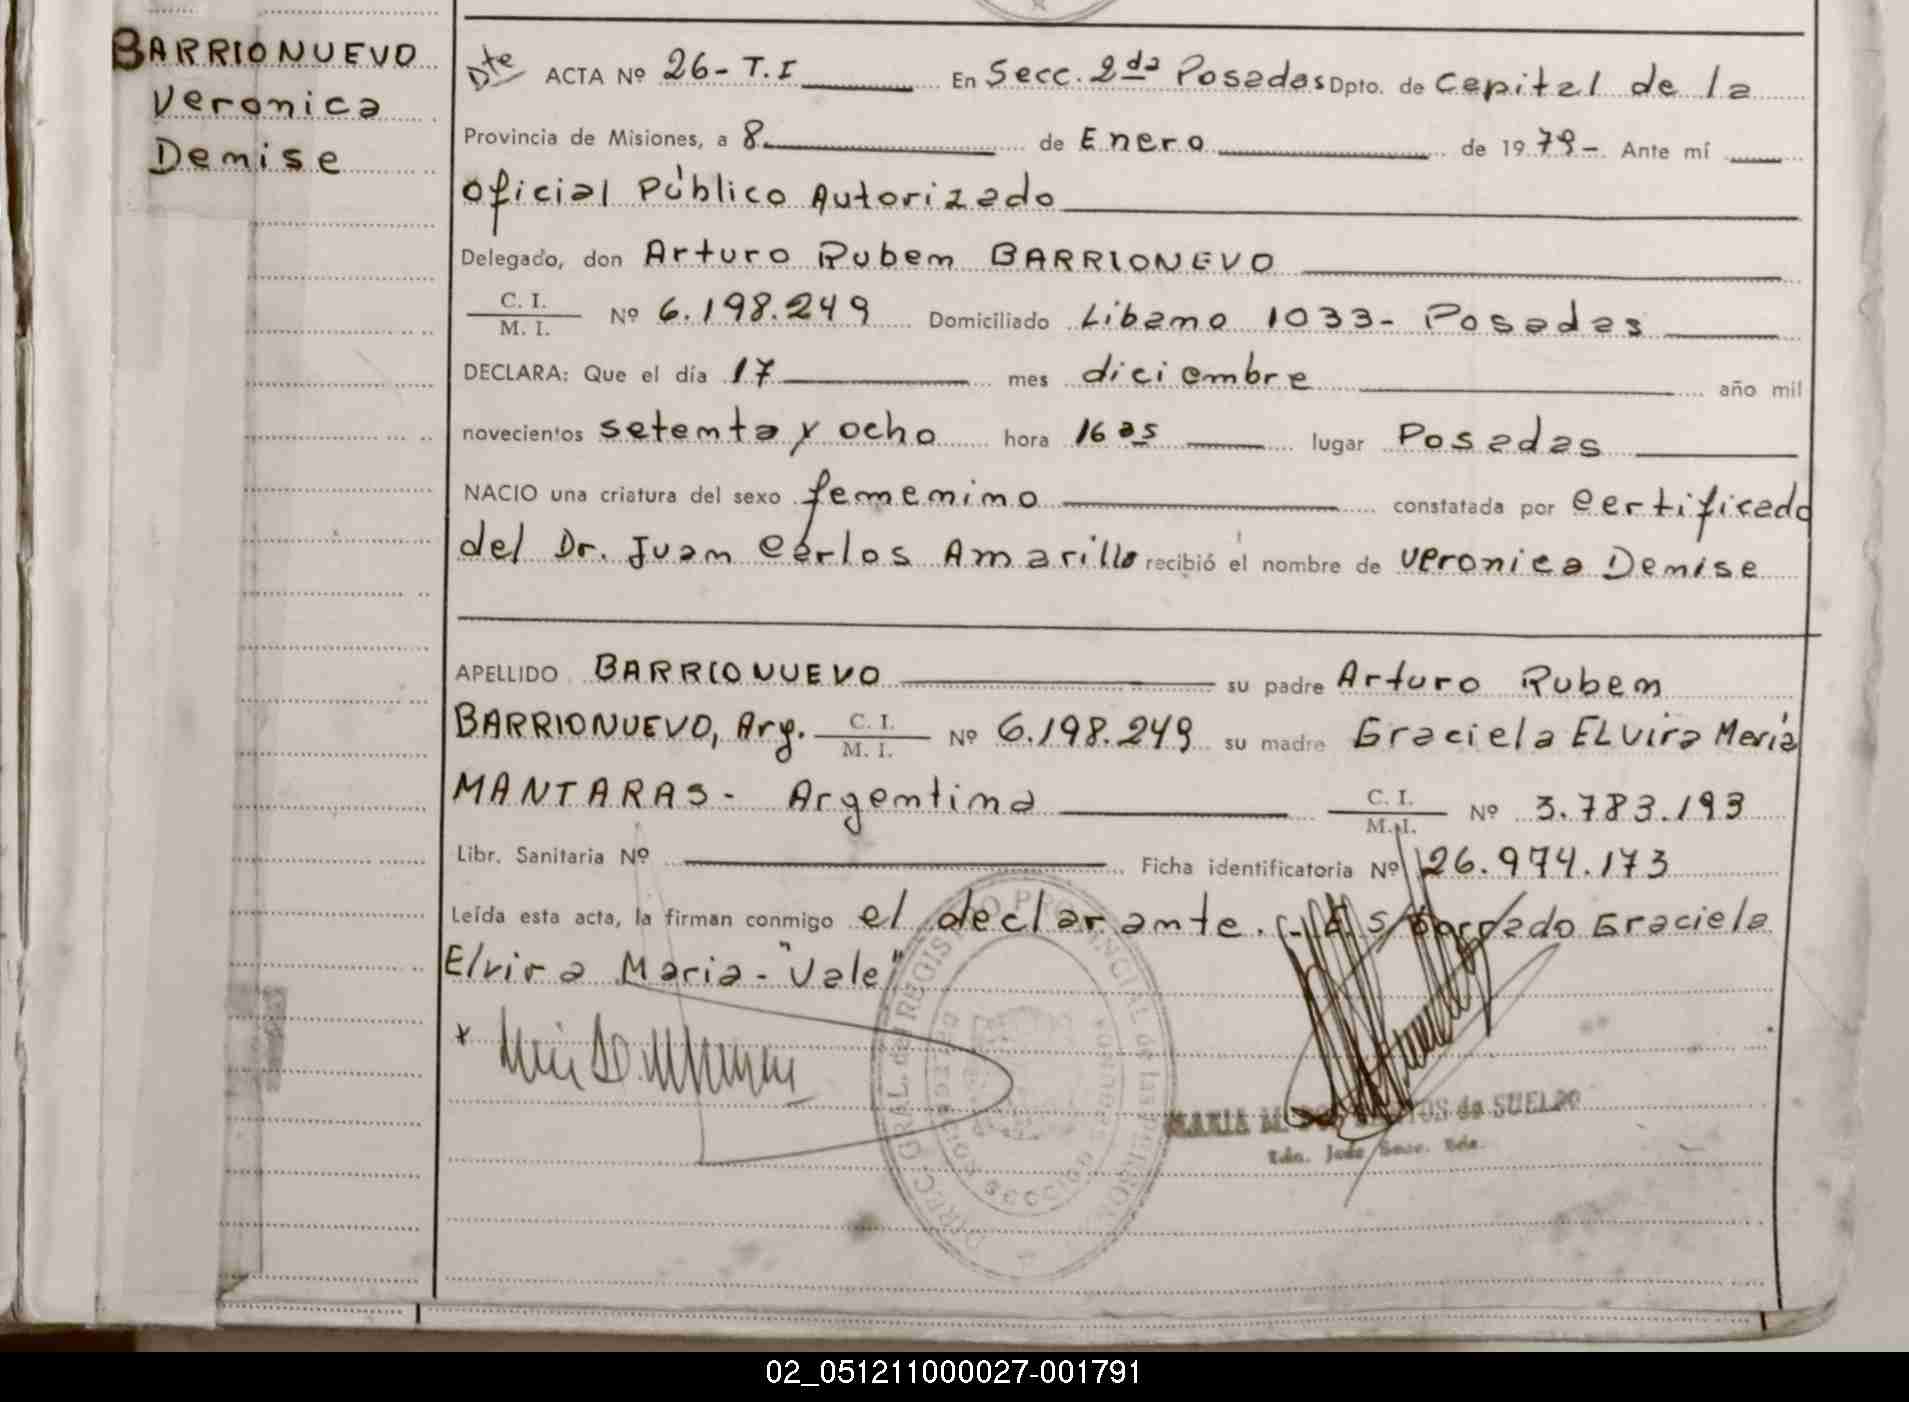 BARRIONUEVO
Veronica
Denise
Dte ACTA Nº 26- T.I En Secc. 2da Posadas Dpto. de Capital de la
Provincia de Misiones, a 8 de Enero de 1979- Ante mí
Oficial Público Autorizado
Delegado, don Arturo Ruben BARRIONEVO
C. I.
M. I. Nº 6.198.249 Domiciliado Libano 1033- Posadas
DECLARA: Que el día 17 mes diciembre año mil
novecientos setenta y ocho hora 16 as lugar Posadas
NACIO una criatura del sexo femenino constatada por certificado
del Dr. Juan Carlos Amarillo recibió el nombre de Veronica Denise
APELLIDO BARRIONUEVO su padre Arturo Ruben
BARRIONUEVO, Arg. C. I. M. I. Nº 6.198.249 su madre Graciela ELvira Maria
MANTARAS- Argentina C. I. M. I. Nº 3.783.193
Libr. Sanitaria Nº Ficha identificatoria Nº 26.974.173
Leída esta acta, la firman conmigo el declarante. Graciela
Elvira Maria- "Vale"
MARIA de SUELDO
02_051211000027-001791